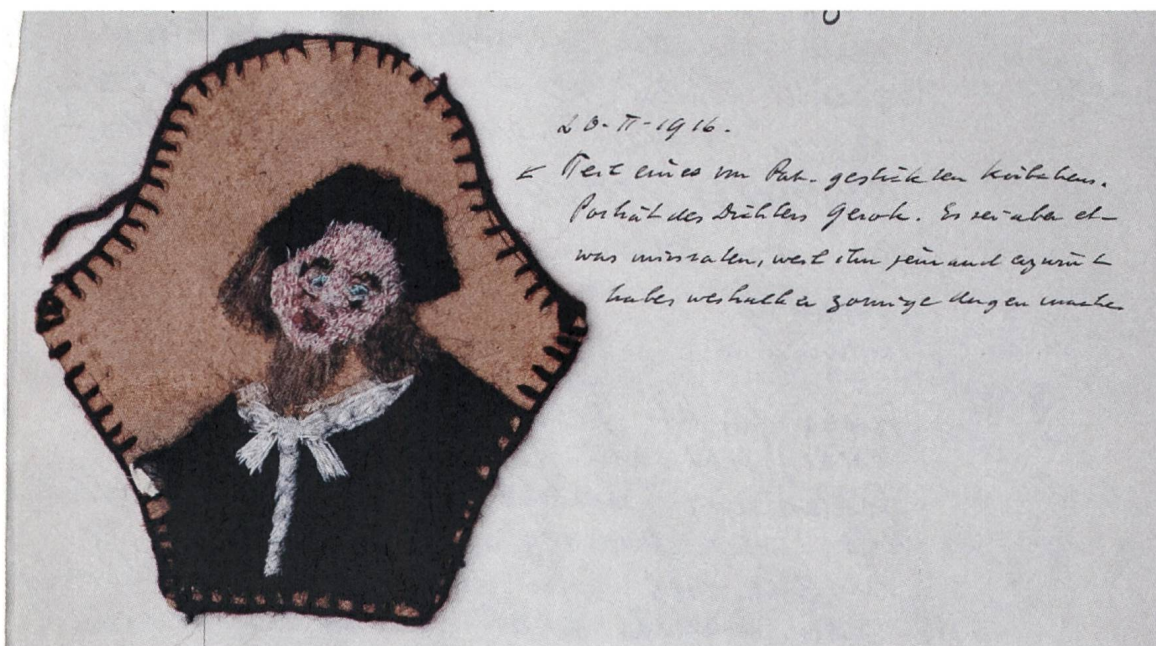 20-II-1916.
Teil eines vom Pat. gestickten Körbchens.
Porträt des Dichters Gerok. Es sei aber et-
was missraten, weil ihn jemand erzürnt
habe, weshalb er zornige Augen mache